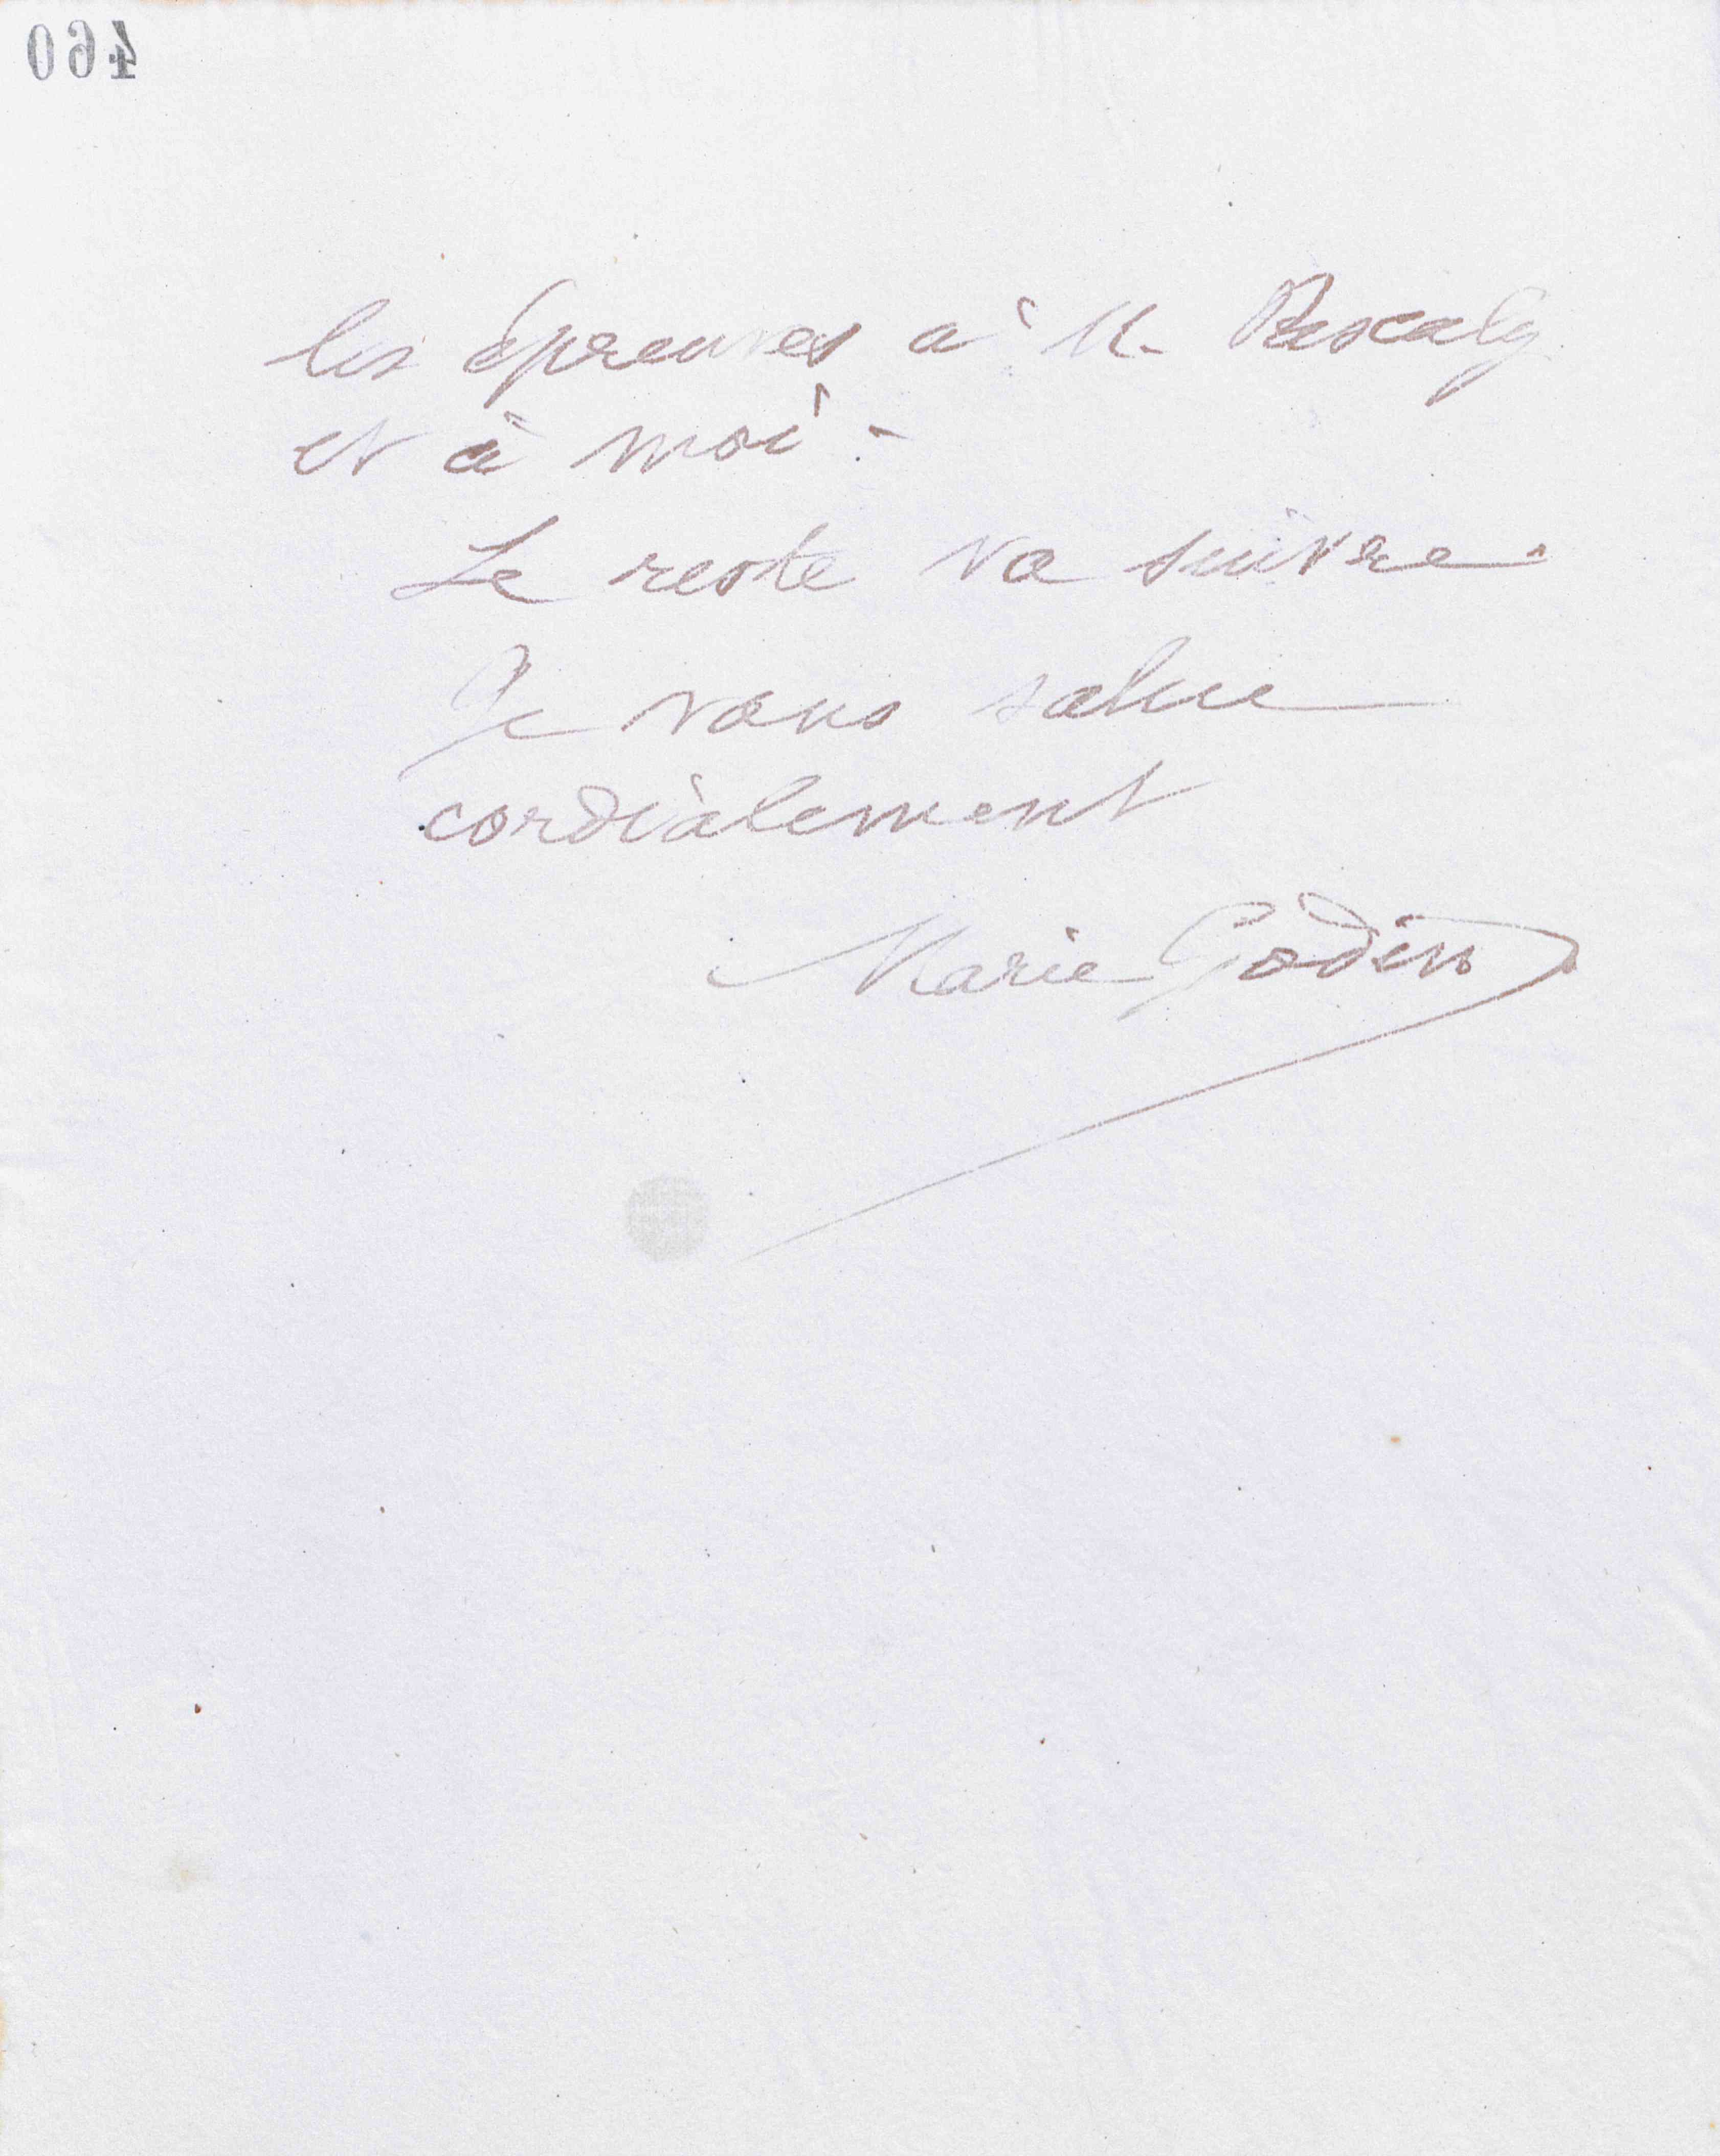 460
les épreuves à M. Pascaly
et à moi.
Le reste va suivre.
Je vous salue
cordialement
Marie Godin